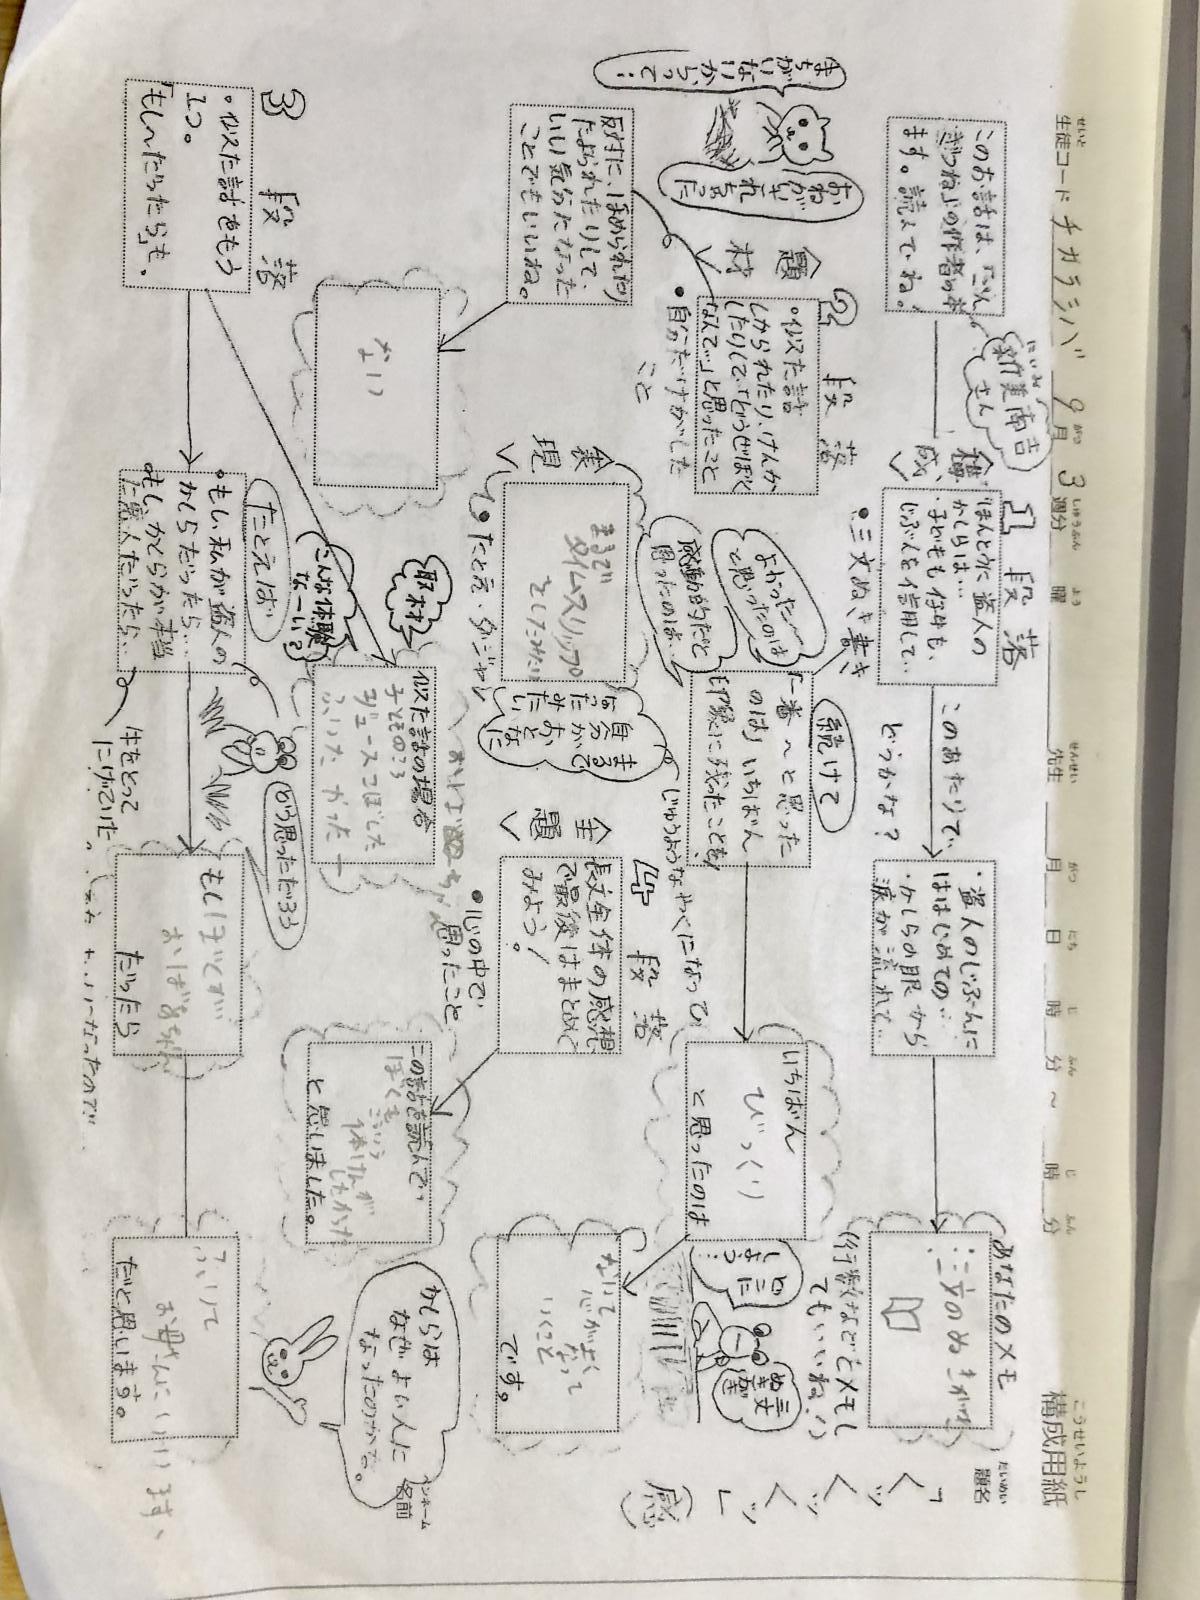 構成用紙
こうせいようし
せいと
生徒コード チカラシバ 9月 3週分 曜 先生 月 日 時 分 ~ 時 分
がつ しゅうぶん よう せんせい がつ にち じ ふん じ ふん
だいめい
題名
「くッくッくッ」
(感)
ペンネーム
名前
このお話は、「ごん
ぎつね」の作者の本
ます。読んでね。
にいみ
新美南吉
さん
構成
1段落
ほんとうに盗人の
かしらは…
・子どもも仔牛も、
じぶんを信用して…
・三文ぬき書き
このあたりで
どうかな?
・盗人のじぶんに
はじめての…
・かしらの眼から
涙が流れて…
あなたのメモ
三文のぬきがき
(行数などをメモし
てもいいね!)
続けて
「一番~と思った
のは」いちばん
印象に残ったことを
よかった
と思ったのは
感動的だと
思ったのは…
いちばん
びっくり
と思ったのは
どこに
しよう…
三文
抜き
書き
ないて
心がよく
なって
いくこと
です。
題材
2段落
・似た話
しかられたり、けんか
したりして、「どうせぼく
なんて」と思ったこと
・自分だけがした
こと
まちがい
ないから
って…
おねがい
された
反対に、ほめられたり
たよられたりして、
いい気分になった
ことでもいいね。
ない
表現
・たとえ・ダジャレ
まるで
タイムスリップ
をしたみたい
まるで
自分が
おとなに
なったみたい
じゅうようなやくになって
3段落
・似た話をもう
1つ。
「もし~だったら」も。
取材
こんな体験
なーい?
似た話の場合
子どものころ
ジュースこぼした
ふいた
たとえば
・もし、私が盗人の
かしらだったら…
・もし、かしらが本当
に悪人だったら…
どう思っただろう
牛をとって
にげていた。
もしぼくが
おばあちゃん
だったら
ふいて
お母さんにいいます、
だと思います。
主題
4段落
長文全体の感想
で最後はまとめて
みよう!
・心の中で
思ったこと
この話を読んで
ぼくも
こういう
体けんが
したかった
と思いました。
かしらは
なぜよい人に
なったのかな。